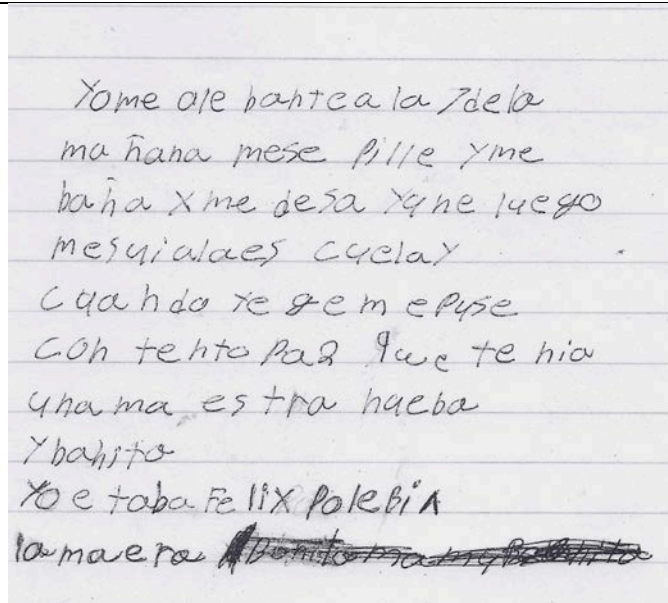 Yome ale bantea la 7 dela
ma ñana mese Pille Yme
baña X me desa Yyne luego
mesuialaes cuelay
cuando Yegemepuse
contento paq que tenia
una ma estra nueba
Y bahito
Yo e taba Felix PoleBiA
la maera